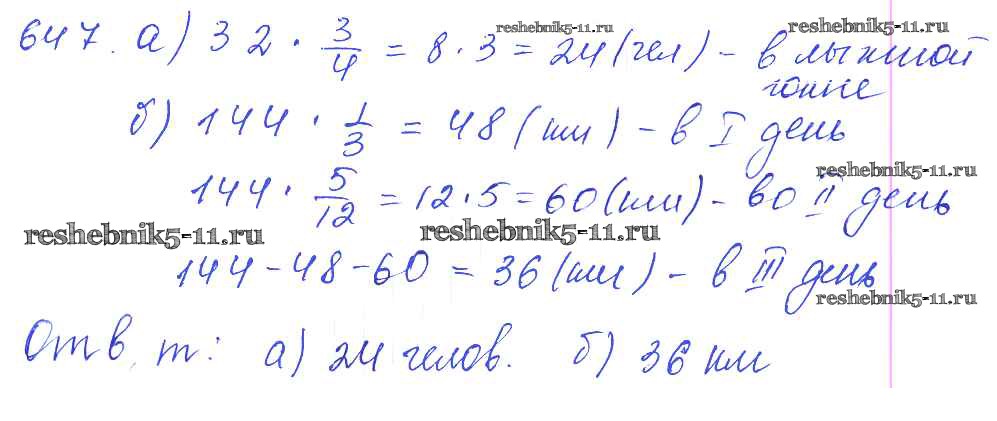 reshebnik5-11.ru reshebnik5-11.ru
647. а) 32 · 3/4 = 8 · 3 = 24 (чел) - в лыжной
гонке
б) 144 · 1/3 = 48 (км) - в I день
reshebnik5-11.ru
144 · 5/12 = 12 · 5 = 60 (км) - во II день
reshebnik5-11.ru reshebnik5-11.ru
144 - 48 - 60 = 36 (км) - в III день
reshebnik5-11.ru
Отв. т: а) 24 челов. б) 36 км